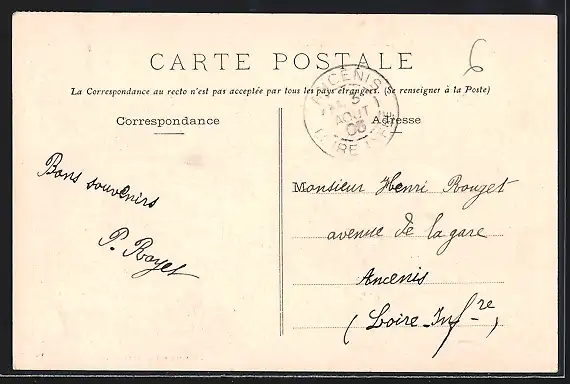 CARTE POSTALE
6
La Correspondance au recto n'est pas acceptée par tous les pays étrangers. (Se renseigner à la Poste)
ANCENIS
5
AOUT
05
LOIRE INFRE
Correspondance
Adresse
Bons souvenirs
P. Royet
Monsieur Henri Rouzet
avenue de la gare
Ancenis
(Loire-Infre)